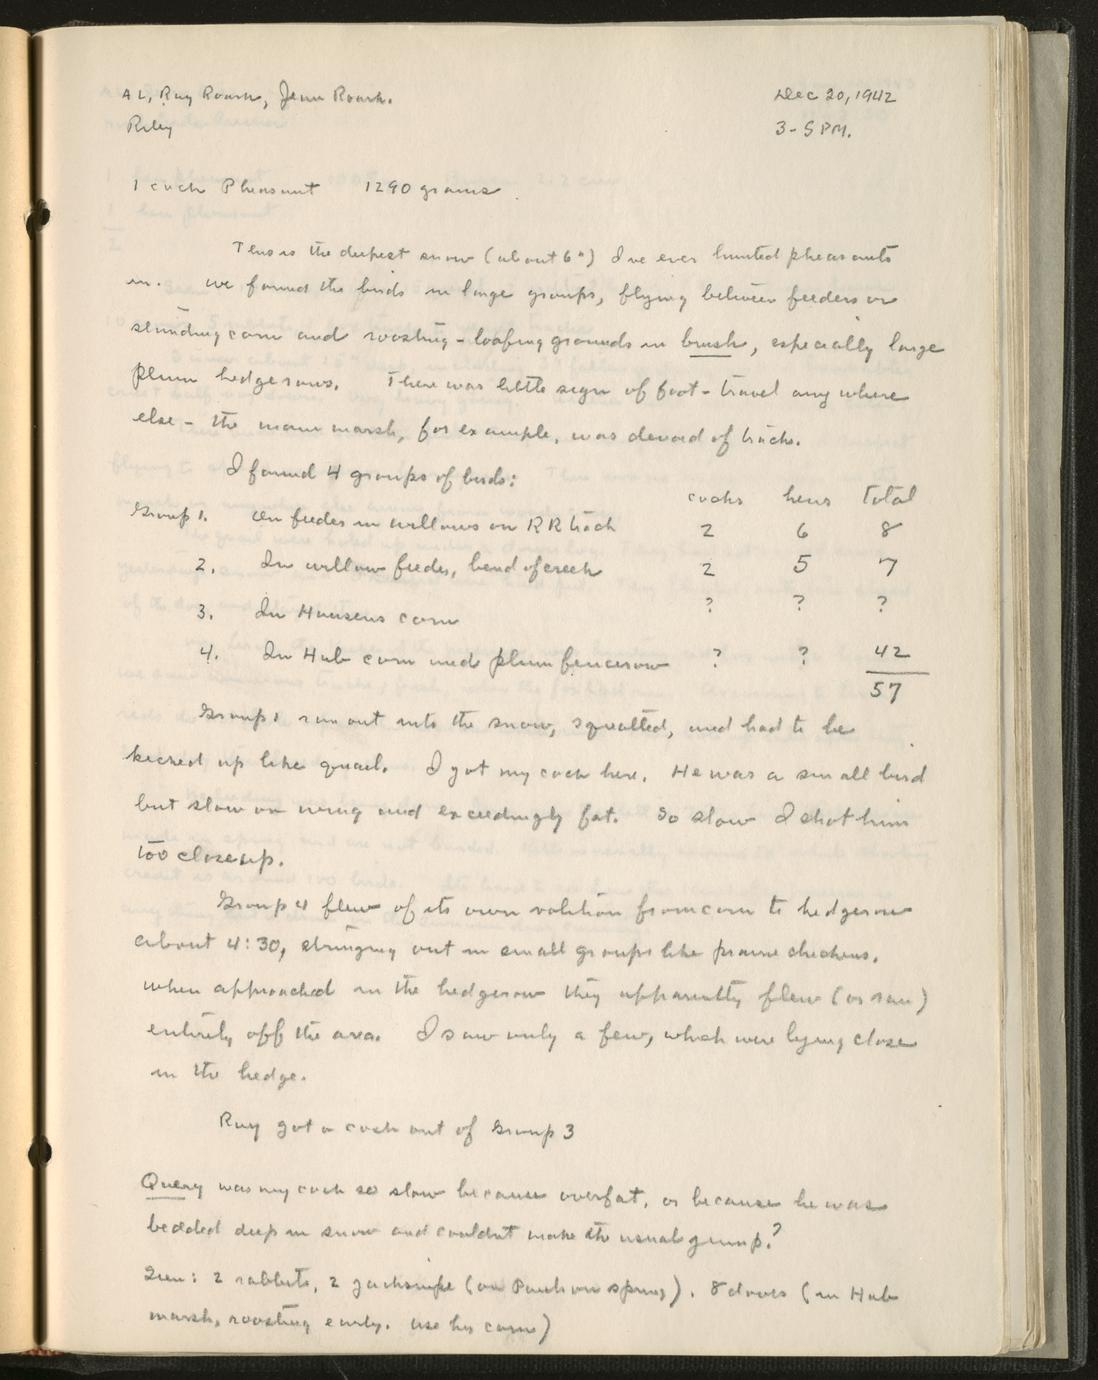 AL, Ray Roark, Jenn Roark. Dec 20, 1942
Riley 3-5 PM.
1 cock Pheasant 1290 grams.
This is the deepest snow (about 6") I've ever hunted pheasants
in. We found the birds in large groups, flying between feeders or
standing corn and roosting-loafing grounds in brush, especially large
plum hedgerows. There was little sign of foot-travel anywhere
else - the main marsh, for example, was devoid of tracks.
I found 4 groups of birds:
cocks hens Total
Group 1. On feeder in willows on RR track 2 6 8
2. In willow feeder, bend of creek 2 5 7
3. In Hansens corn ? ? ?
4. In Hub corn and plum fencerow ? ? 42
57
Group 1 ran out into the snow, squatted, and had to be
kicked up like quail. I got my cock here. He was a small bird
but slow on wing and exceedingly fat. So slow I shot him
too close up.
Group 4 flew of its own volition from corn to hedgerow
about 4:30, stringing out in small groups like prairie chickens.
When approached in the hedgerow they apparently flew (or ran)
entirely off the area. I saw only a few, which were lying close
in the hedge.
Ray got a cock out of Group 3
Query was my cock so slow because overfat, or because he was
bedded deep in snow and couldnt make the usual jump?
Seen: 2 rabbits, 2 jacksnipe (on Paulson spring). 8 doves (in Hub
marsh, roosting early. Use his corn)